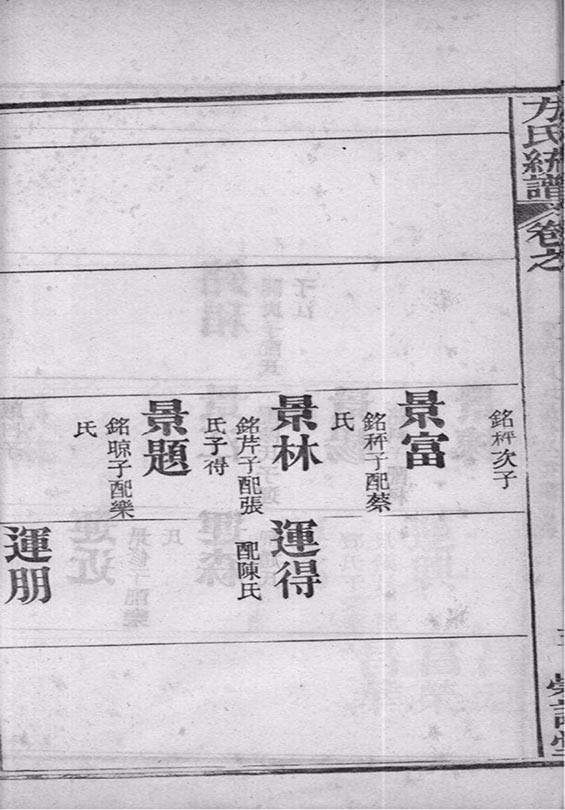 方氏統譜
卷之
銘秤次子
景富
銘秤子配蔡
氏
景林
銘芹子配張
氏子得
運得
配陳氏
景題
銘晾子配樂
氏
運朋